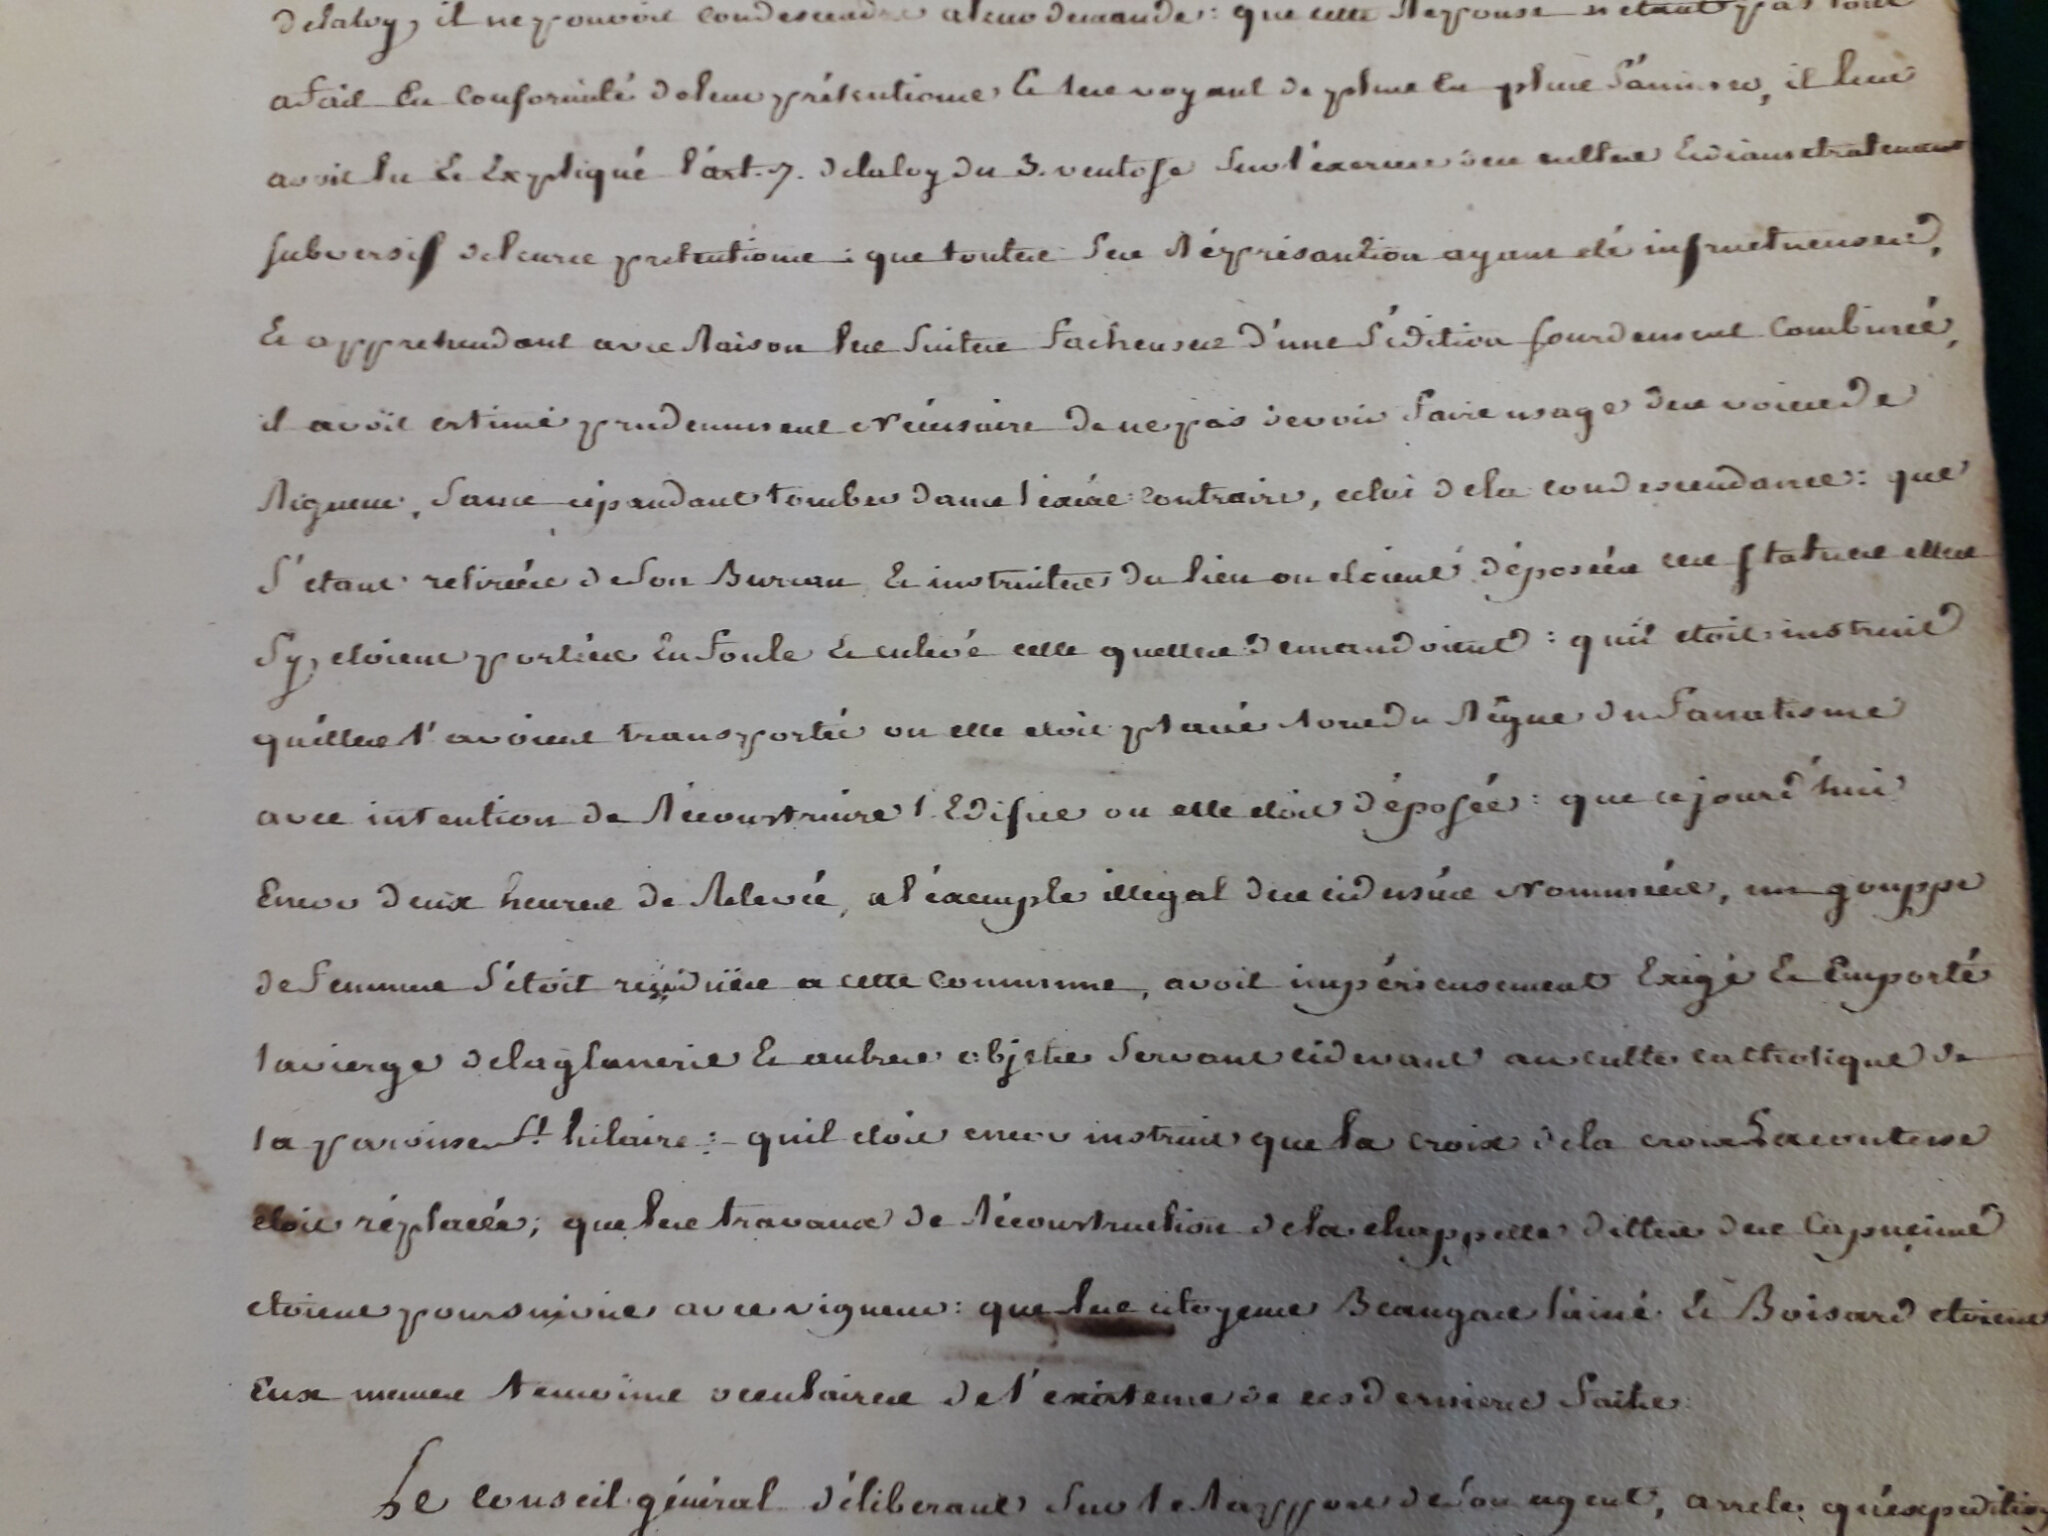 delaloy, il ne pouvoit condescendre a leur demande: que cette Réponse n'étant pas tout
a fait En conformité de leurs prétentions Et les voyant de plus En plus s'animer, il leur
avoit lu Et Expliqué l'art. 7. de la loy du 3. ventose sur l'exercice des cultes Et diamétralement
subversif de leurs prétentions: que toutes ses Réprésantation ayant été infructueuses,
Et apprehendant avec Raison les suites facheuses d'une sédition sourdement combinée,
il avoit estimé prudemment Nécessaire de ne pas devoir faire usage des voies de
Rigueur, sans cépendant tomber dans l'excéz contraire, celui de la condescendance: que
s'étant retirées de son Bureau Et instruites du lieu ou étoient déposées ces statues elles
s'y étoient portées En foule Et enlevé celle quelles demandoient: qu'il étoit instruit
qu'elles l'avoient transporté ou elle étoit placé lors du Régne du fanatisme
avec intention de Réconstruire l'Edifice ou elle étoit déposée: que cejourd'hui
Encor deux heures de Relevée, a l'éxemple illégal des cidessus Nommées, un gouppe
de femmes s'étoit rendues a cette commune, avoit impérieusement Exigé Et Emporté
la vierge de la glanerie Et autres objets servant cidevant au culte catholique de
la paroisse St hilaire: quil étoit encor instruit que la croix de la croix la comtesse
étoit réplacée; que les travaux de Réconstruction de la chappelle dittes des Capucins
étoient poursuivies avec vigueur: que les citoyens Beaugas l'ainé Et Boisard étoient
Eux memes temoins occulaires de l'existence de ces derniers faits.
Le conseil général déliberant sur le Rapport de son agent, arrete qu'expedition